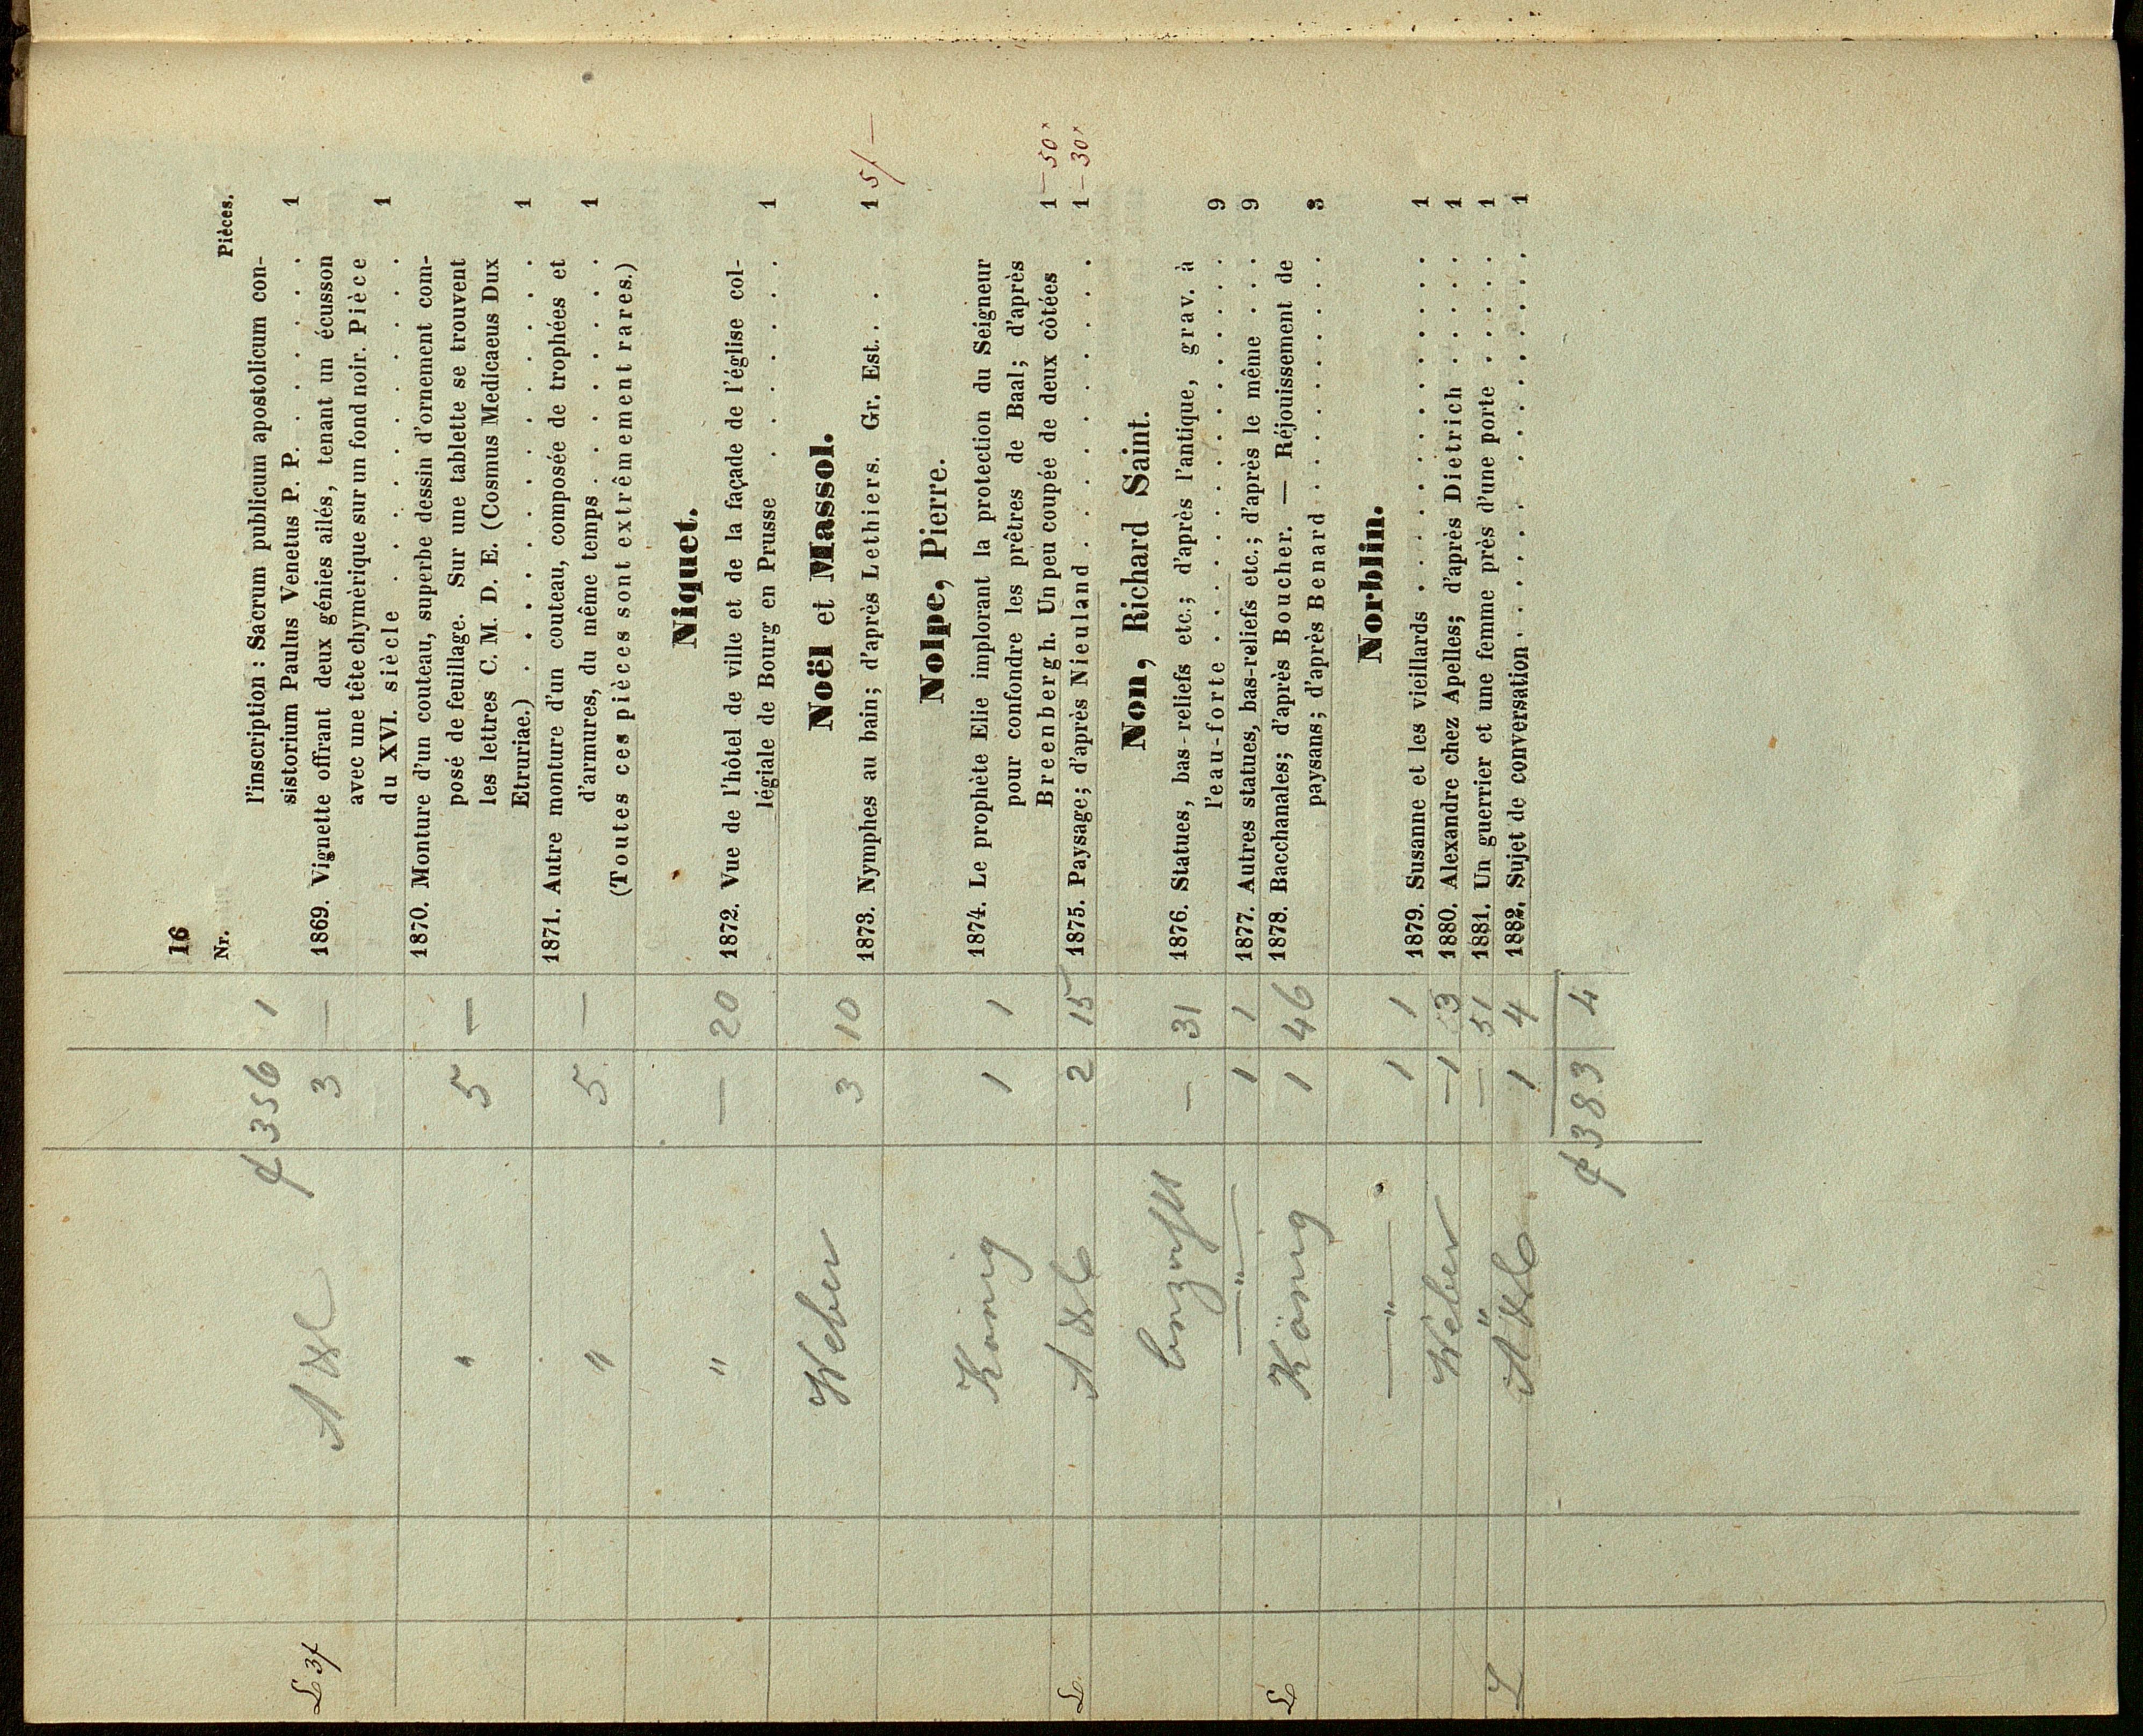 16
Nr. Pièces.
₰ 356 1 l'inscription : Sacrum publicum apostolicum con-
sistorium Paulus Venetus P. P. . . . . . . . 1
3 — 1869. Vignette offrant deux génies ailés, tenant un écusson
avec une tête chymèrique sur un fond noir. Pièce
du XVI. siècle . . . . . . . . . . 1
1870. Monture d'un couteau, superbe dessin d'ornement com-
" 5 — posé de feuillage. Sur une tablette se trouvent
les lettres C. M. D. E. (Cosmus Medicaeus Dux
Etruriae.) . . . . . . . . . . . . 1
1871. Autre monture d'un couteau, composée de trophées et
" 5 — d'armures, du même temps . . . . . . . 1
(Toutes ces pièces sont extrêmement rares.)
Niquet.
" — 20 1872. Vue de l'hôtel de ville et de la façade de l'église col-
légiale de Bourg en Prusse . . . . . . 1
Noël et Massol.
Weber 3 10 1873. Nymphes au bain; d'après Lethiers. Gr. Est. . . 1 5/—
Nolpe, Pierre.
König 1 1 1874. Le prophète Elie implorant la protection du Seigneur
pour confondre les prêtres de Baal; d'après
Breenbergh. Un peu coupée de deux côtées 1 — 50ˣ
L 2 15 1875. Paysage; d'après Nieuland . . . . . . . . 1 — 30ˣ
Non, Richard Saint.
— 31 1876. Statues, bas-reliefs etc.; d'après l'antique, grav. à
l'eau-forte . . . . . . . . . . . . 9
—"— 1 1 1877. Autres statues, bas-reliefs etc.; d'après le même . . . 9
L König 1 46 1878. Bacchanales; d'après Boucher. — Réjouissement de
paysans; d'après Benard . . . . . . . . 3
Norblin.
—"— 1 1 1879. Susanne et les vieillards . . . . . . . . . . 1
Weber 1880. Alexandre chez Apelles; d'après Dietrich . . . . 1
" — 51 1881. Un guerrier et une femme près d'une porte . . . . 1
1 4 1882. Sujet de conversation . . . . . . . . . . . 1
₰ 383 4